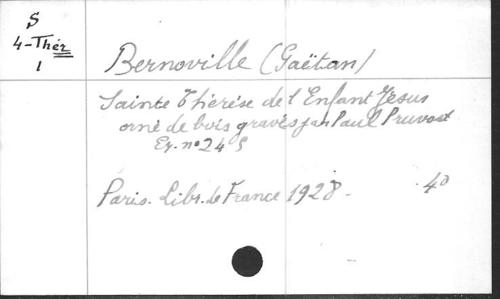 S
4-Thér
1
Bernoville (Gaëtan)
Sainte Thérèse de l'Enfant Jésus
orné de bois gravés par Paul Pruvost
Ex. n° 245
Paris. Libr. de France 1928 - 4°